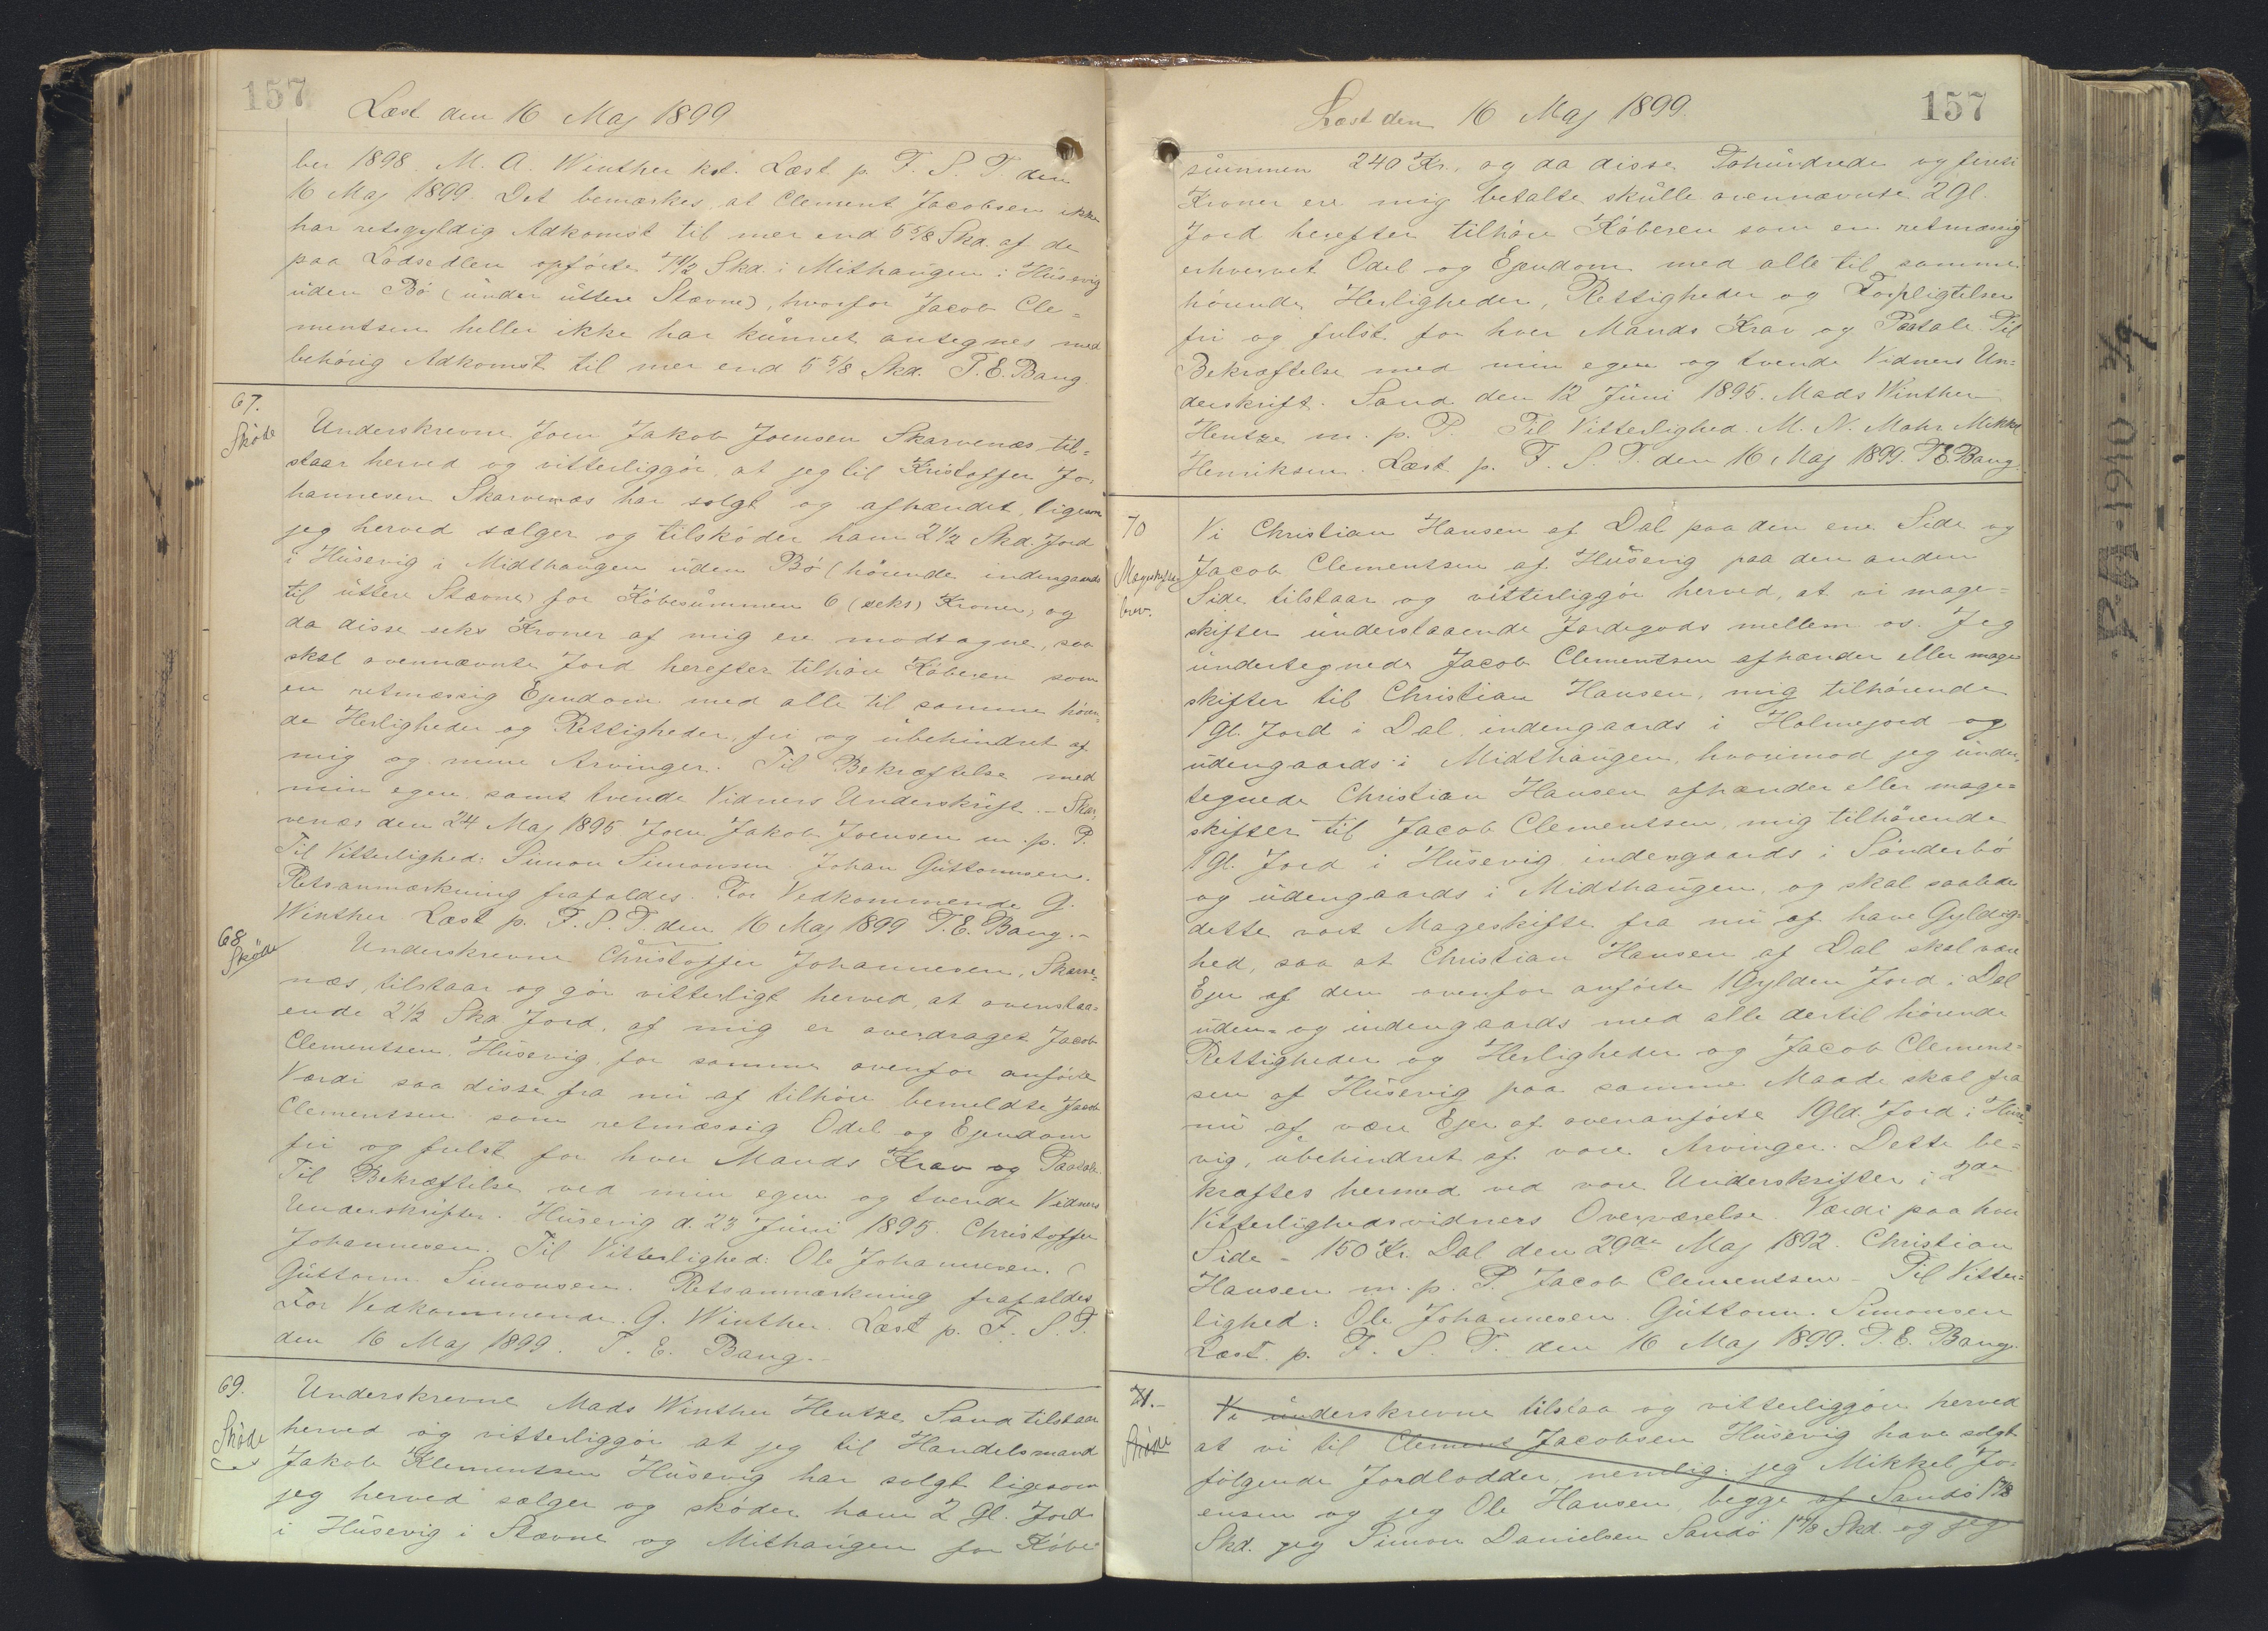 157
Læst den 16 Maj 1899
ber 1898. M. A. Winther kst. Læst p. F. S. T. den
16 Maj 1899. Det bemærkes, at Clement Jacobsen ikke
har retsgyldig Adkomst til mer end 5 5/8 Skd. af de
paa Lodsedlen opførte 7 1/2 Skd. i Mithaugen i Húsevig
úden Bø (únder úttere Stævne), hvorfor Jacob Cle=
mentsen heller ikke har kúnnet antegnes med
behørig Adkomst til mer end 5 5/8 Skd. T. E. Bang.
67.
Skøde
Underskrevne Joen Jakob Joensen Skarvenæs til=
staar herved og vitterliggør, at jeg til Kristoffer Jo=
hannesen Skarvenæs har solgt og afhændet, ligesom
jeg herved sælger og tilskøder ham 2 1/2 Skd. Jord
i Húsevig i Midthaugen úden Bø (hørende indengaards
til úttere Stævne) for Købesúmmen 6 (seks) Kroner, og
da disse seks Kroner af mig ere modtagne, saa
skal ovennævnte Jord herefter tilhøre Køberen som
en retmæssig Ejendom med alle til samme høren=
de Herligheder og Rettigheder, fri og úbehindret af
mig og mine Arvinger. Til Bekræftelse med
min egen samt tvende Vidners Underskrift. - Skar=
venæs den 24 Maj 1895 Joen Jakob Joensen m. p. P.
Til Vitterlighed: Simon Simonsen. Johan Gúttormsen.
Retsanmærkning frafaldes. For Vedkommende G.
Winther Læst p. F. S. T. den 16 Maj 1899 T. E. Bang. -
68
Skøde
Underskrevne Christoffer Johannesen, Skarve=
næs, tilstaar og gør vitterligt herved, at ovenstaa=
ende 2 1/2 Skd Jord, af mig er overdraget Jacob
Clementsen, Húsevig, for samme ovenfor anførte
Værdi saa disse fra nú af tilhøre bemeldte Jacob
Clementsen som retmæssig Odel og Ejendom
fri og fulst for hver Mands Krav og Paatale
Til Bekræftelse ved min egen og tvende Vidners
Underskrifter. Húsevig d. 23 Júni 1895. Christoffer
Johannesen. Til Vitterlighed: Ole Johannesen.
Gúttorm Simonsen. Retsanmærkning frafaldes
For Vedkommende. G. Winther. Læst p. F. S. T.
den 16 Maj 1899. T. E. Bang. -
69.
Skøde
Underskrevne Mads Winther Hentze, Sand tilstaar
herved og vitterliggør at jeg til Handelsmand
Jakob Klementsen Húsevig har solgt ligesom
jeg herved sælger og skøder ham 2 Gl. Jord
i Húsevig i Stævne og Mithaúgen for Købe
157
Læst den 16 Maj 1899.
súmmen 240 Kr., og da disse Tohúndrede og fireti
Kroner ere mig betalte skúlle ovennævnte 2 Gl.
Jord herefter tilhøre Køberen som en retmæssig
erhvervet Odel og Ejendom med alle til samme
hørende Herligheder, Rettigheder og Forpligtelser
fri og fulst for hver Mands Krav og Paatale. Til
Bekræftelse med min egen og tvende Vidners Un=
derskrift. Sand den 12 Júni 1895. Mads Winther
Hentze m. p. P. Til Vitterlighed. M. N. Mohr. Mikkel
Henriksen. Læst p. F. S. T. den 16 Maj 1899. T. E. Bang.
70
Mageskifte
brev.
Vi Christian Hansen af Dal paa den ene Side og
Jacob Clementsen af Húsevig paa den anden
Side tilstaar og vitterliggjør herved, at vi mage=
skifter únderstaaende Jordegods mellem os. Jeg
úndertegnede Jacob Clementsen afhænder eller mage
skifter til Christian Hansen, mig tilhørende
1 Gl. Jord i Dal, indengaards i Holmejord og
údengaards i Midthaúgen, hvorimod jeg únder=
tegnede Christian Hansen afhænder eller mage=
skifter til Jacob Clementsen, mig tilhørende
1 Gl. Jord i Húsevig indengaards i Sønderbø
og údengaards i Midthaúgen, og skal saaledes
dette vort Mageskifte fra nú af have Gyldig=
hed, saa at Christian Hansen af Dal skal være
Ejer af den ovenfor anførte 1 Gylden Jord i Dal
úden= og indengaards med alle dertil hørende
Rettigheder og Herligheder og Jacob Clement=
sen af Húsevig paa samme Maade skal fra
nú af være Ejer af ovenanførte 1 Gld. Jord i Húse=
vig, úbehindret af vore Arvinger. Dette be=
kræftes hermed ved vore Underskrifter i 2de
Vitterlighedsvidners Overværelse Værdi paa hver
Side - 150 Kr. Dal den 29de Maj 1892. Christian
Hansen m. p. P. Jacob Clementsen - Til Vitter=
lighed: Ole Johannesen. Gúttorm. Simonsen
Læst. p. F. S. T. den 16 Maj 1899. T. E. Bang.
71.-
Skøde
Vi únderskrevne tilstaa og vitterliggjøre herved
at vi til Clement Jacobsen Húsevig have solgt
følgende Jordlodder, nemlig: jeg Mikkel Jo=
ensen og jeg Ole Hansen begge af Sandø
Skd. jeg Simon Danielsen Sandø 1 7/8 Skd. og jeg